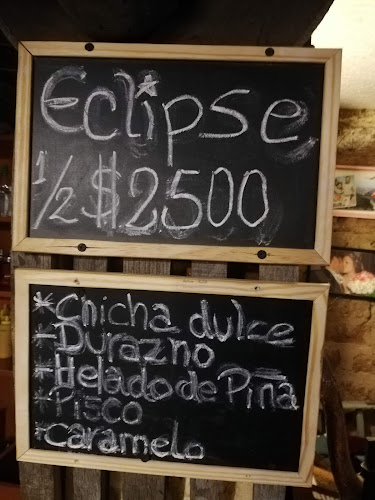 Eclipse
1/2 $2500
*Chicha dulce
*Durazno
*Helado de Piña
*Pisco
*Caramelo